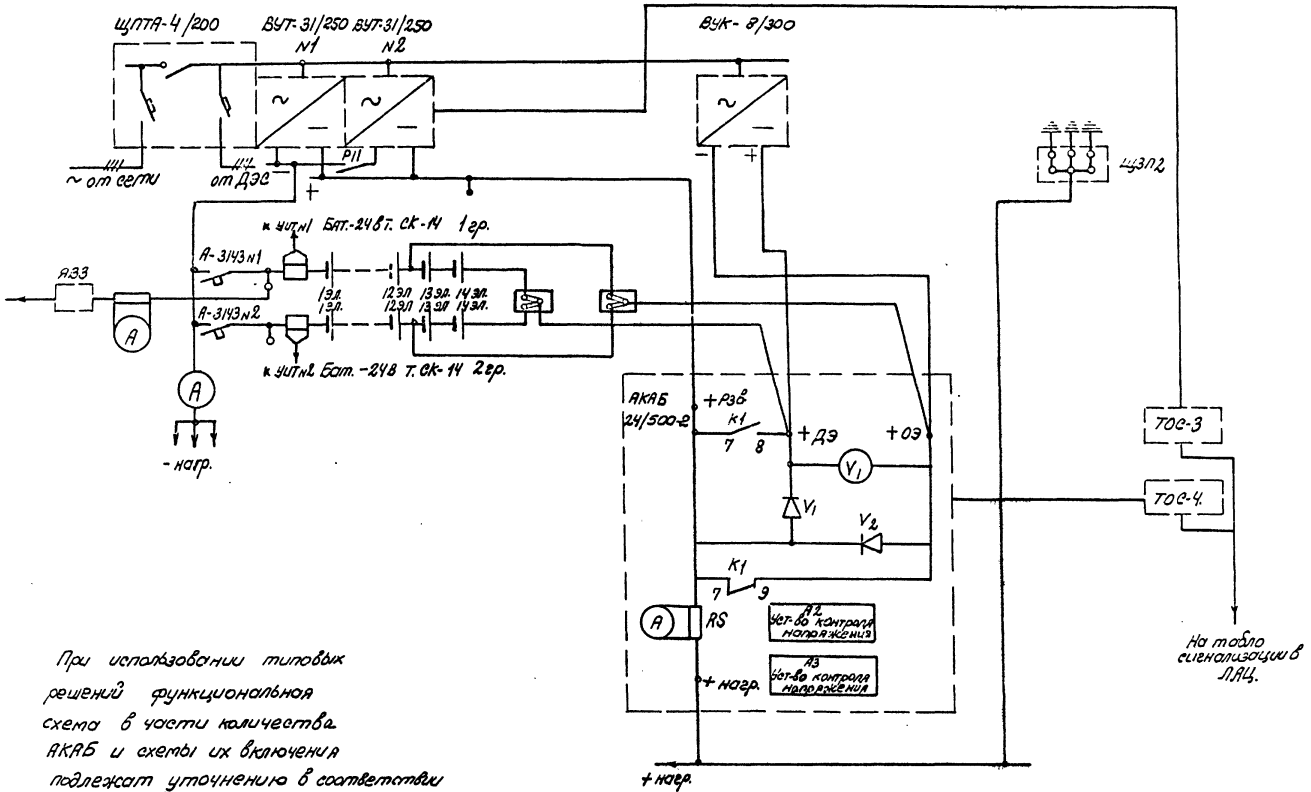 ЩПТА-4/200
ВУТ-31/250 ВУТ-31/250
N1 N2
ВУК-8/300
~ ~ ~
— — —
~ от сети
от ДЭС
—
+
Р11
— +
ЩЗП2
к УИТ N1 Бат.-24В т. СК-14 1гр.
А-3143 N1
ЯЭЗ
1эл. 12эл 13эл. 14эл.
1эл. 12эл 13эл 14эл.
А-3143 N2
А
к УИТ N2 Бат. -24В т. СК-14 2гр.
А
-нагр.
АКАБ
24/500-2
+РЗВ
К1
7 8
+ДЭ
+ОЭ
V1
V1
V2
К1
7 9
А
RS
А2
Уст-во контроля
напряжения
А3
Уст-во контроля
напряжения
+нагр.
+нагр.
ТОС-3
ТОС-4.
На табло
сигнализации в
ЛАЦ.
При использовании типовых
решений функциональная
схема в части количества
АКАБ и схемы их включения
подлежат уточнению в соответствии